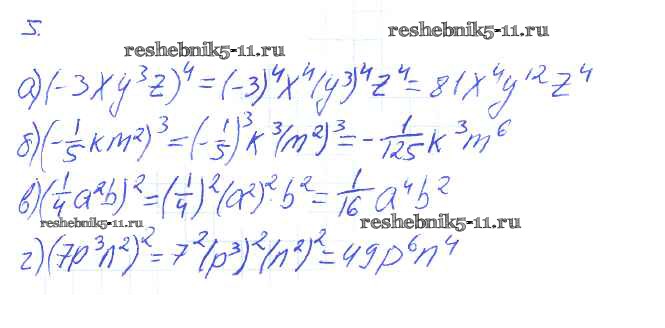 5.
reshebnik5-11.ru
reshebnik5-11.ru
а) (-3xy³z)⁴ = (-3)⁴x⁴(y³)⁴z⁴ = 81x⁴y¹²z⁴
б) (-1/5 km²)³ = (-1/5)³k³(m²)³ = -1/125 k³m⁶
в) (1/4 a²b)² = (1/4)²(a²)²·b² = 1/16 a⁴b²
reshebnik5-11.ru
reshebnik5-11.ru
г) (7p³n²)² = 7²(p³)²(n²)² = 49p⁶n⁴